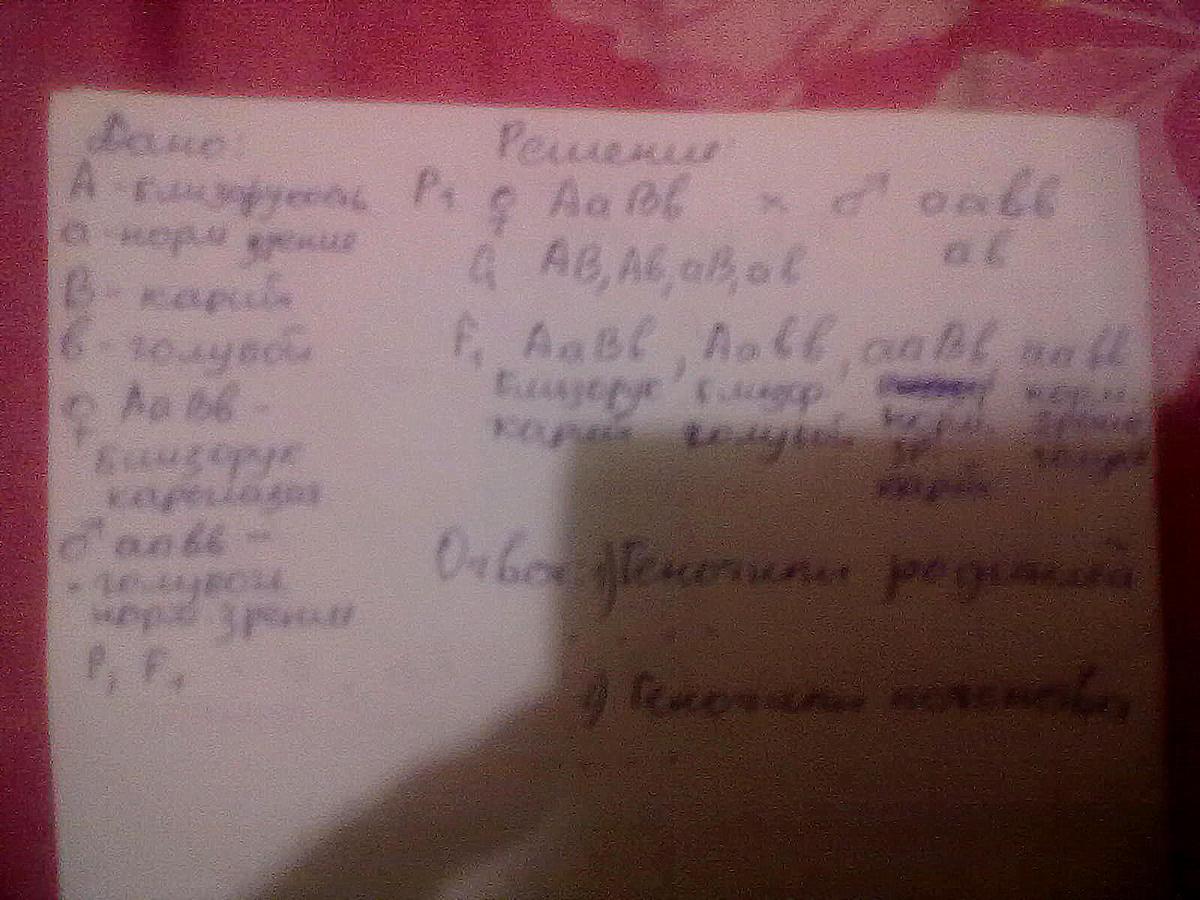 Дано:
А - близорукость
а - норм зрение
В - карий
в - голубой
♀ АаВв -
близорук
кароглазая
♂ аавв -
голубой
норм зрение
P, F₁
Решение:
P₁ ♀ АаВв × ♂ аавв
G АВ, Ав, аВ, ав ав
F₁ АаВв, Аавв, ааВв, аавв
близорук близор норм
карий голубой норм. зрение
зр голуб
карий
Ответ 1) Генотипы родителей
2) Генотипы потомства